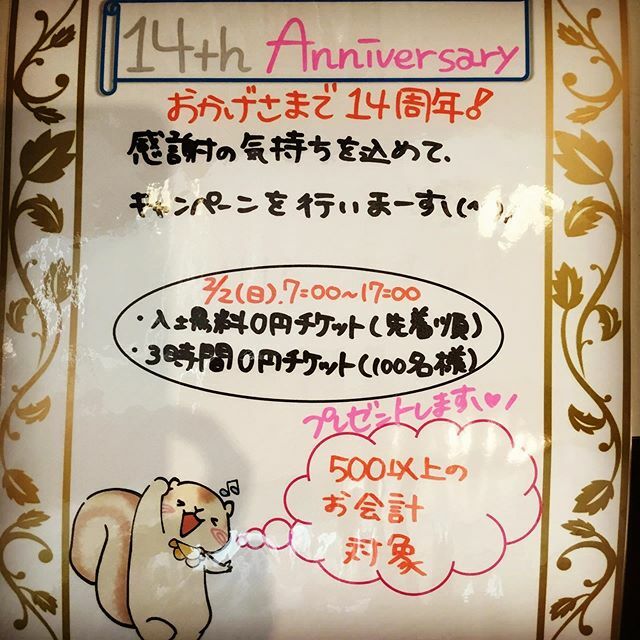 14th Anniversary
おかげさまで14周年!
感謝の気持ちを込めて、
キャンペーンを行いまーす\(^^)
2/2(日).7:00~17:00
・入土無料0円チケット(先着順)
・3時間0円チケット(100名様)
プレゼントします\♥/
500以上の
お会計
対象